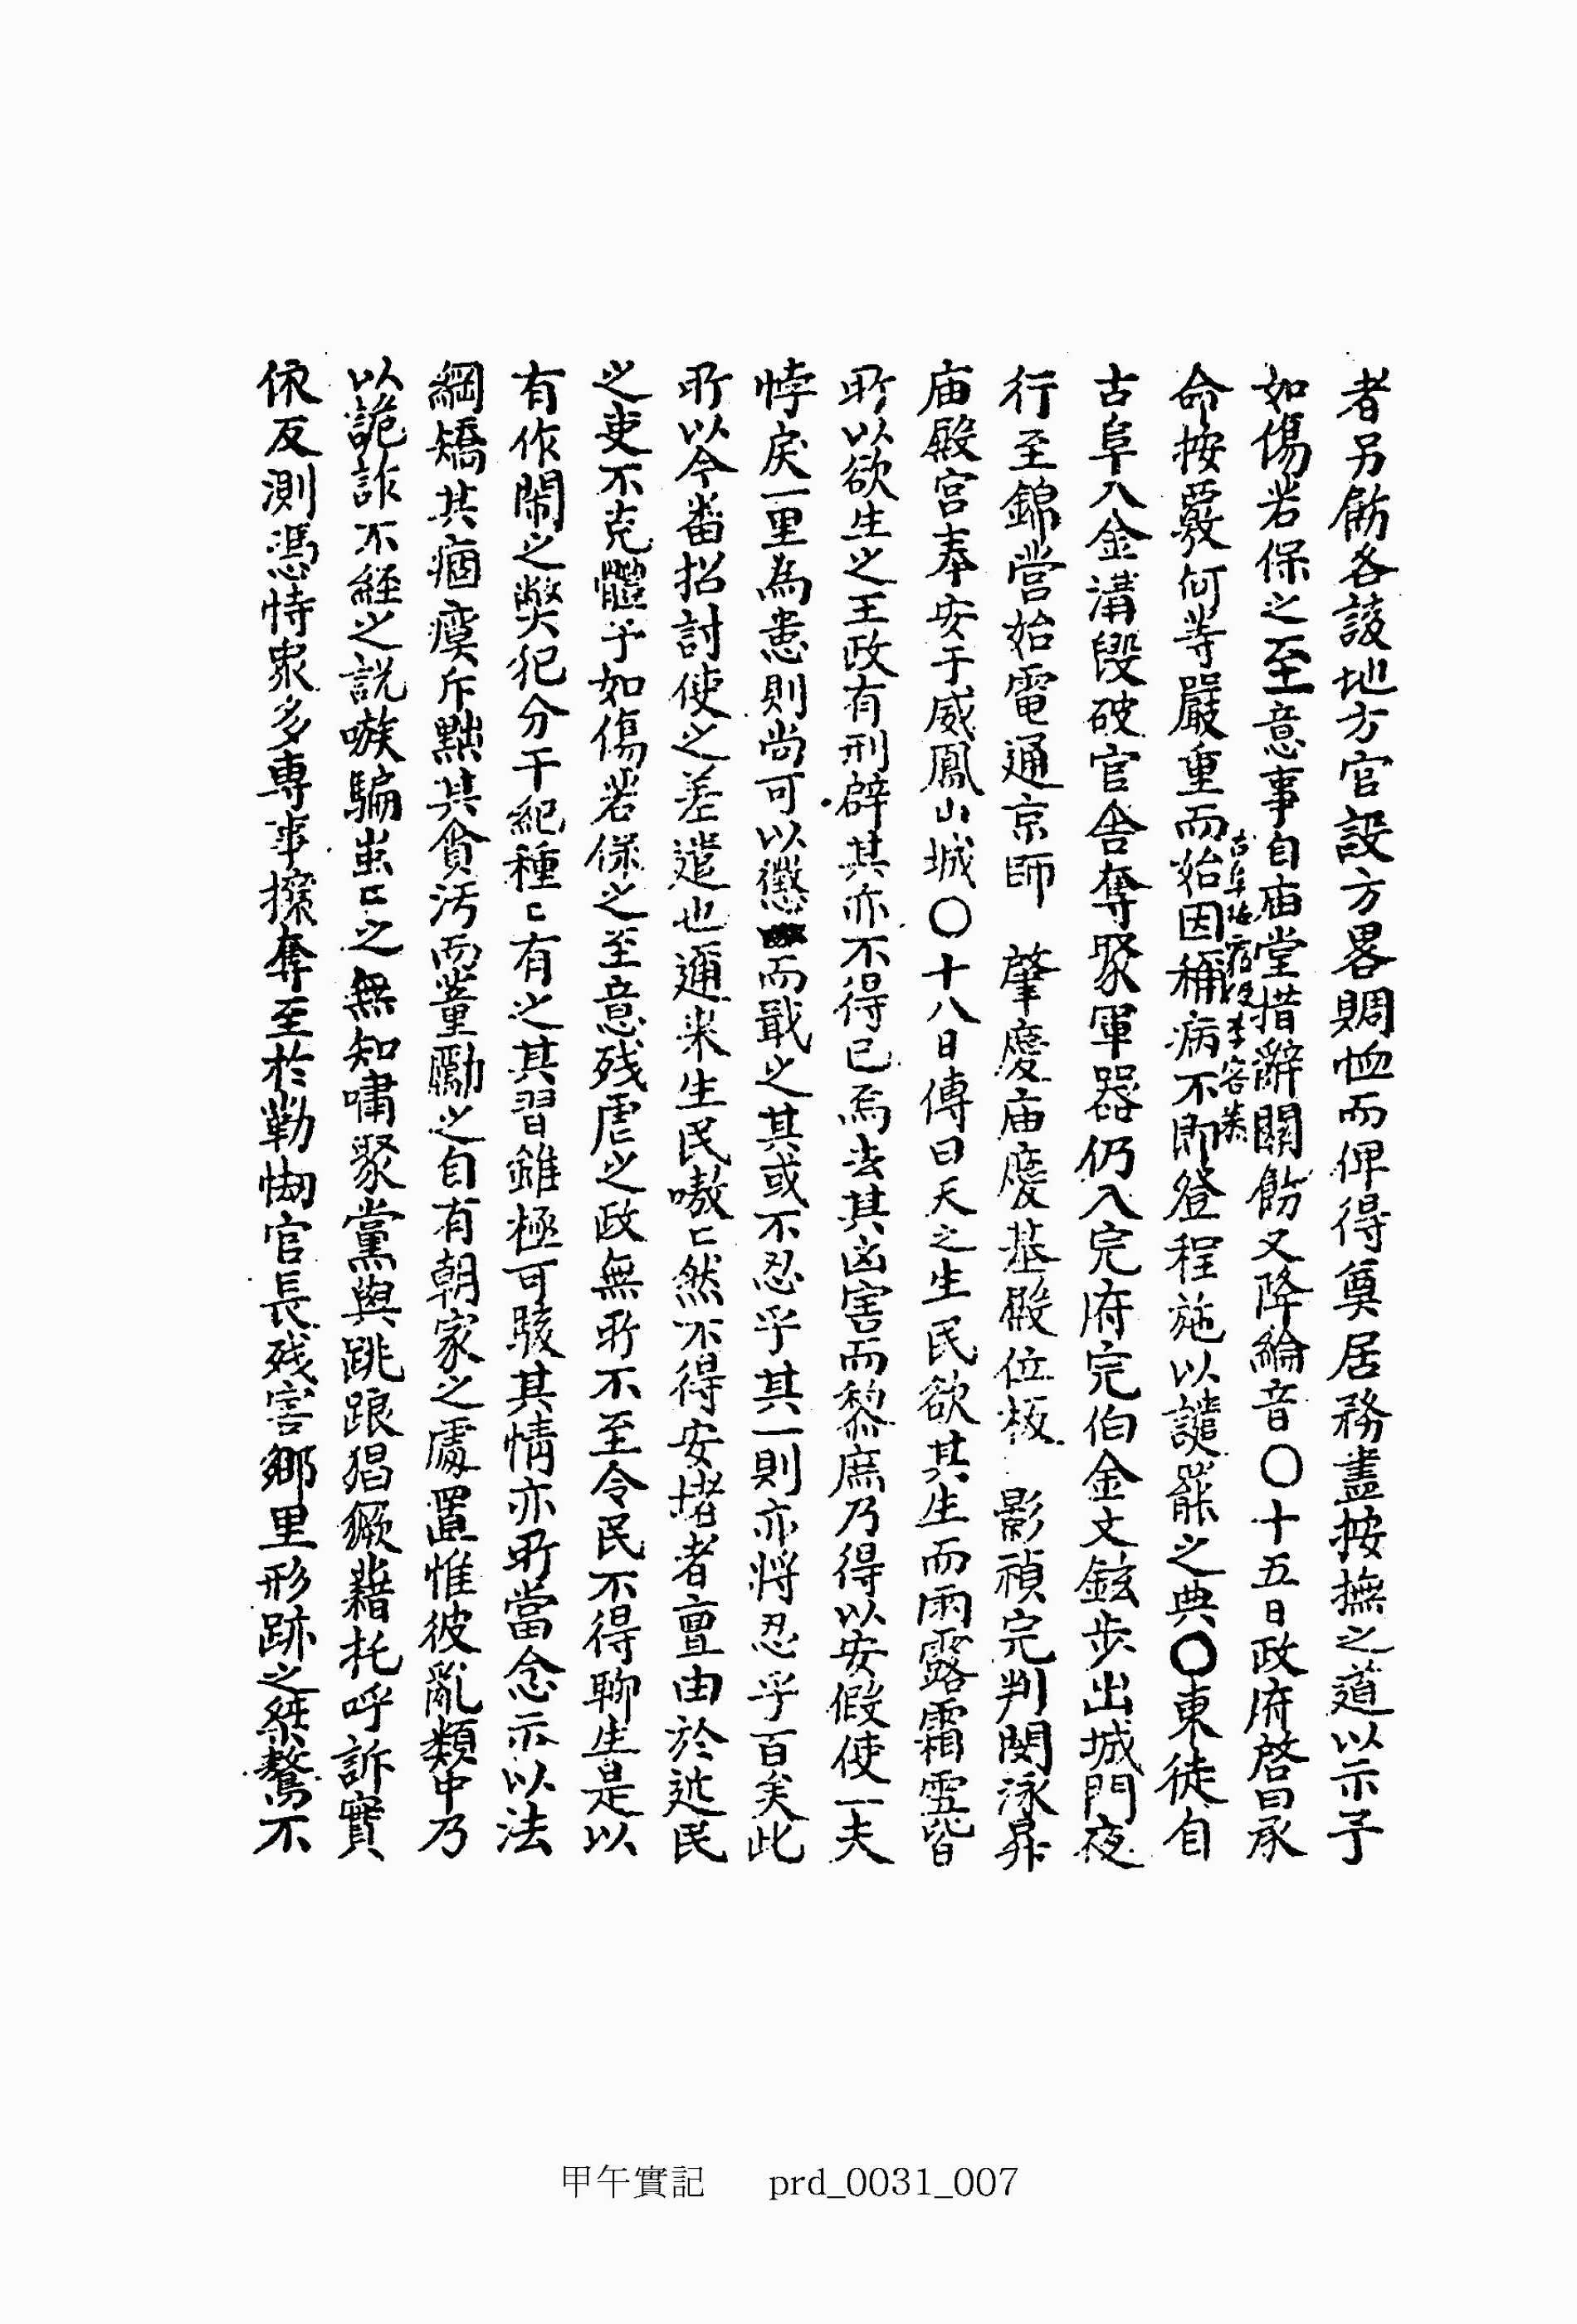 者另飭各該地方官設方畧賙恤而俾得奠居務盡按撫之道以示予
如傷若保之至意事自庙堂措辭關飭又降綸音〇十五日政府啓曰承
命按覈何等嚴重而始因稱病不即登程施以譴罷之典〇東徒自
古阜按
李容泰
古阜入金溝毁破官舍奪聚軍器仍入完府完伯金文鉉步出城門夜
行至錦營始電通京師 肇慶庙慶基殿位板 影禎完判閔泳昇
庙殿宮奉安于威鳳山城〇十八日傳曰天之生民欲其生而雨露霜雪皆
所以欲生之王政有刑辟其亦不得已焉去其凶害而黎庶乃得以安假使一夫
悖戾一里為患則尚可以懲而戢之其或不忍乎其一則亦將忍乎百矣此
所以今番招討使之差遣也邇来生民嗷〻然不得安堵者亶由於近民
之吏不克體予如傷若保之至意残虐之政無所不至令民不得聊生是以
有作鬧之弊犯分干紀種〻有之其習雖極可駭其情亦所當念示以法
綱矯其痼瘼斥黜其貪汚而董勵之自有朝家之處置惟彼亂類中乃
以詭詐不經之説嗾騙蚩〻之無知嘯聚黨與跳踉猖獗藉托呼訴實
依反測憑恃衆多專事攘奪至於勒拗官長残害鄉里形跡之桀驁不
甲午實記 prd_0031_007